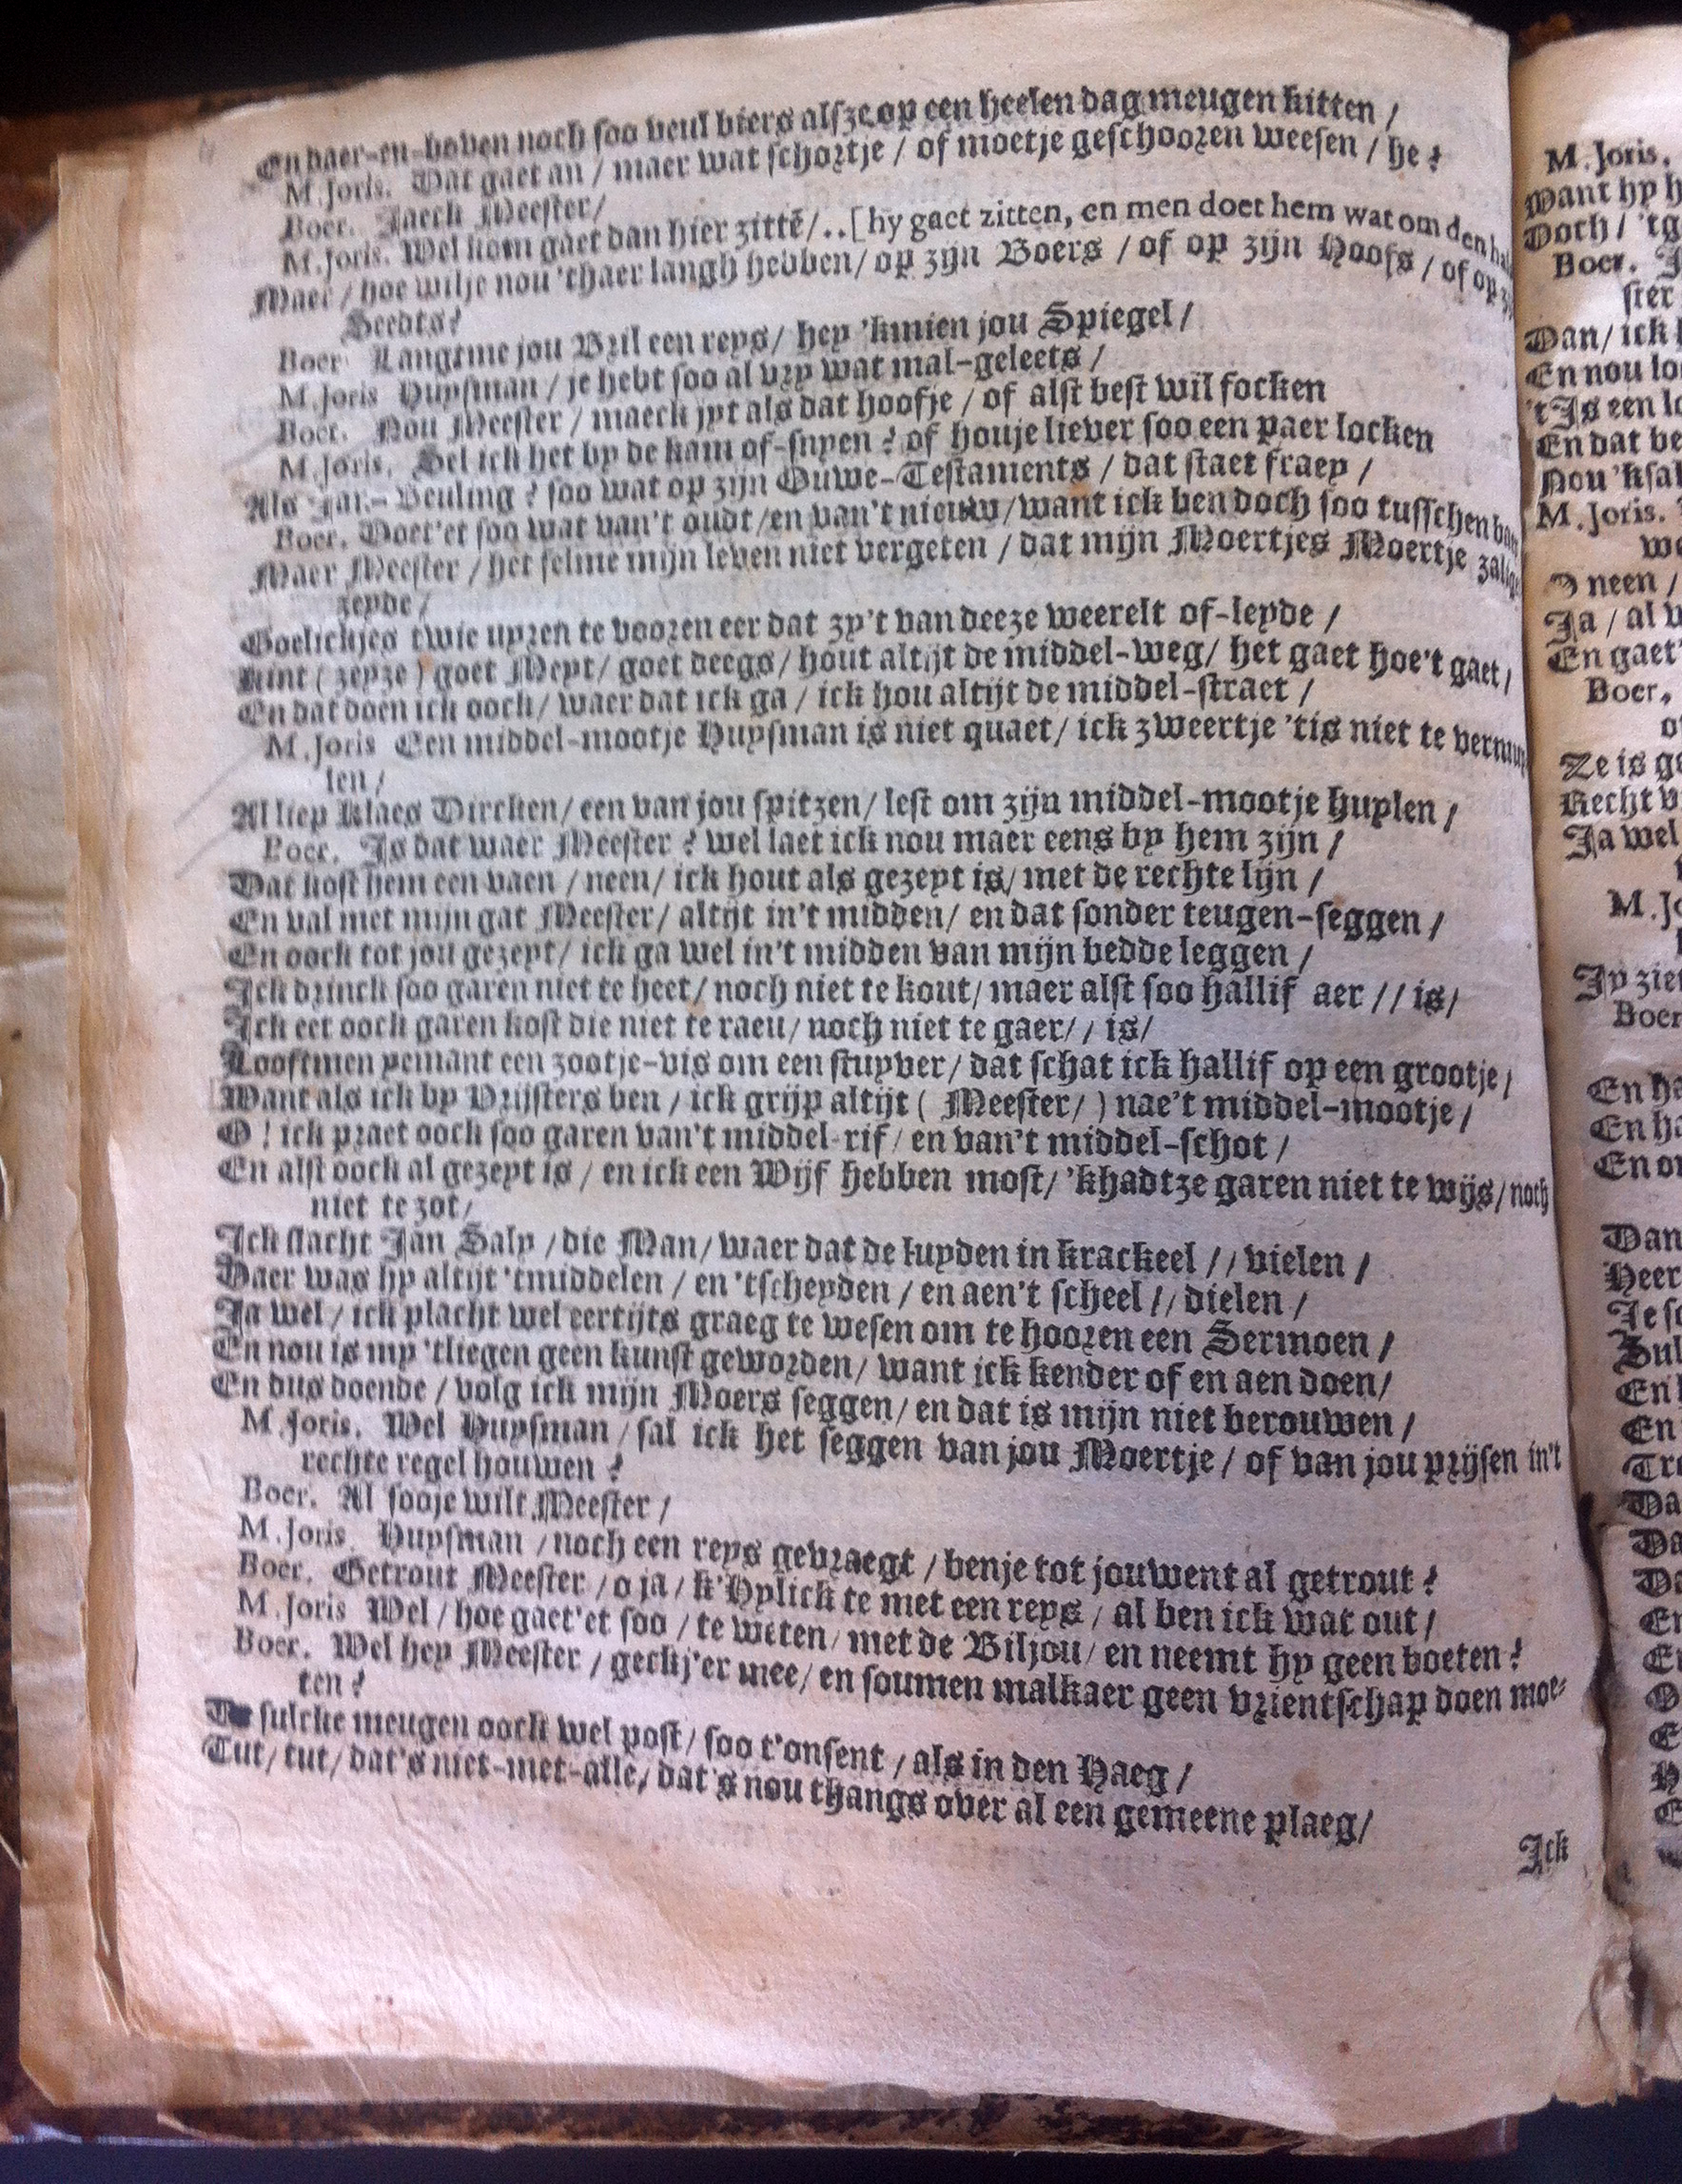 En daer-en-boven noch soo veul biers alsze op een heelen dag meugen kitten /
M. Joris. Dat gaet an / maer wat schortje / of moetje geschooren weesen / he ?
Boer. Jaeck Meester /
M. Joris. Wel kom gaet dan hier zittē / .. [ hy gaet zitten, en men doet hem wat om den hals
Maer / hoe wilje nou 'thaer langh hebben / op zijn Boers / of op zijn Hoofs / of op zijn
Steedts ?
Boer Langtme jou Bril een reys / hey 'kmien jou Spiegel /
M. Joris Huysman / je hebt soo al vry wat mal-geleets /
Boer. Nou Meester / maeck jyt als dat hoofje / of alst best wil focken
M. Joris. Sel ick het by de kam of-snyen ? of houje liever soo een paer locken
Als Jan-Beuling ? soo wat op zijn Ouwe-Testaments / dat staet fraey /
Boer. Doet'et soo wat van't oudt / en van't nieuw / want ick ben doch soo tusschen
Maer Meester / het selme mijn leven niet vergeten / dat mijn Moertjes Moertje zaliger
zeyde /
Goelickjes twie uyren te vooren eer dat zy't van deeze weerelt of-leyde /
Kint ( zeyze ) goet Meyt / goet deegs / hout altijt de middel-weg / het gaet hoe't gaet /
En dat doen ick oock / waer dat ick ga / ick hou altijt de middel-straet /
M. Joris Een middel-mootje Huysman is niet quaet / ick zweertje 'tis niet te vernuy-
len /
Al liep Klaes Dircken / een van jou spitzen / lest om zijn middel-mootje huylen /
Boer. Is dat waer Meester ? wel laet ick nou maer eens by hem zijn /
Dat kost hem een vaen / neen / ick hout als gezeyt is / met de rechte lijn /
En val met mijn gat Meester / altijt in't midden / en dat sonder teugen-seggen /
En oock tot jou gezeyt / ick ga wel in't midden van mijn bedde leggen /
Ick drinck soo garen niet te heet / noch niet te kout / maer alst soo hallif aer / / is /
Ick eet oock garen kost die niet te raeu / noch niet te gaer / / is /
Looftmen yemant een zootje-vis om een stuyver / dat schat ick hallif op een grootje /
Want als ick by Vrijsters ben / ick grijp altijt ( Meester / ) nae't middel-mootje /
O ! ick praet oock soo garen van't middel-rif / en van't middel-schot /
En alst oock al gezeyt is / en ick een Wijf hebben most / 'khadtze garen niet te wijs / noch
niet te zot /
Ick slacht Jan Saly / die Man / waer dat de luyden in krackeel / / vielen /
Daer was hy altijt 'tmiddelen / en 'tscheyden / en aen't scheel / / dielen /
Ja wel / ick placht wel eertijts graeg te wesen om te hooren een Sermoen /
En nou is my 'tliegen geen kunst geworden / want ick kender of en aen doen /
En dus doende / volg ick mijn Moers seggen / en dat is mijn niet berouwen /
M. Joris. Wel Huysman / sal ick het seggen van jou Moertje / of van jou prijsen in't
rechte regel houwen ?
Boer. Al sooje wilt Meester /
M. Joris. Huysman / noch een reys gevraegt / benje tot jouwent al getrout ?
Boer. Getrout Meester / o ja / k'Hylick te met een reys / al ben ick wat out /
M. Joris Wel / hoe gaet'et soo / te weten / met de Biljou / en neemt hy geen boeten ?
Boer. Wel hey Meester / geckj'er mee / en soumen malkaer geen vrientschap doen moe-
ten ?
sulcke meugen oock wel post / soo t'onsent / als in den Haeg /
Tut / tut / dat's niet-met-alle / dat's nou thangs over al een gemeene plaeg /
Ick
M. Joris.
Want hy h
Doch / 'tg
Boer. J
ster
Dan / ick
En nou lo
't Is een lo
En dat be
Nou 'ksal
M. Joris.
we
O neen /
Ja / al v
En gaet'
Boer.
Ze is ge
Recht v
Ja wel
M. Jo
Jy ziet
Boer
En ha
En ha
En on
Dan
Heer
Je so
Sul
En
En
Tre
Da
Da
Da
En